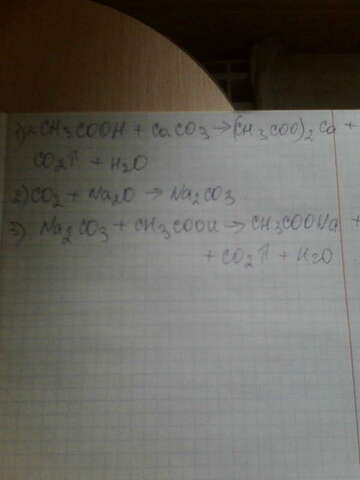 1) 2CH3COOH + CaCO3 → (CH3COO)2Ca +
CO2↑ + H2O
2) CO2 + Na2O → Na2CO3
3) Na2CO3 + CH3COOH → CH3COONa +
+ CO2↑ + H2O